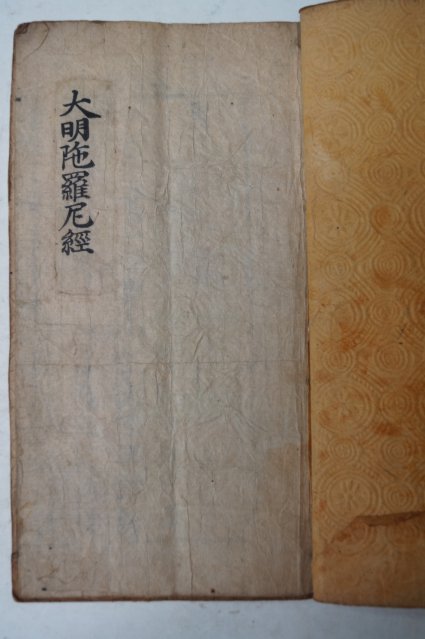 大明陁羅尼經